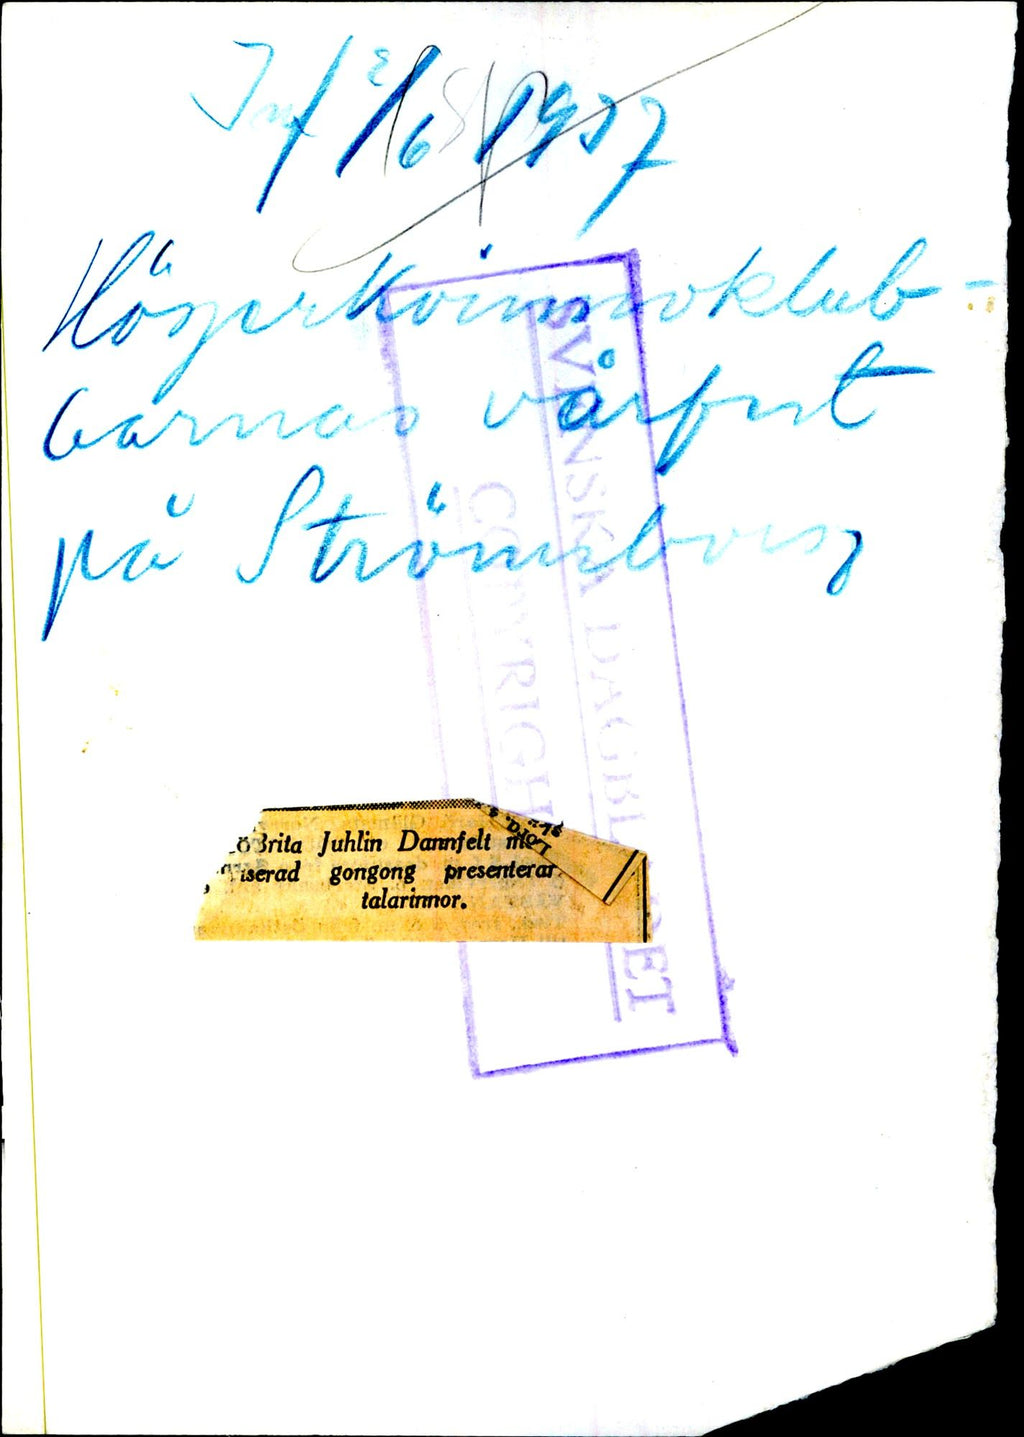 Inf 2/6 1937
Högerkvinnoklub-
barnas vårfest
på Strömsborg
SVENSKA DAGBLADET
COPYRIGHT
Brita Juhlin Dannfelt
iserad gongong presenterar
talarinnor.